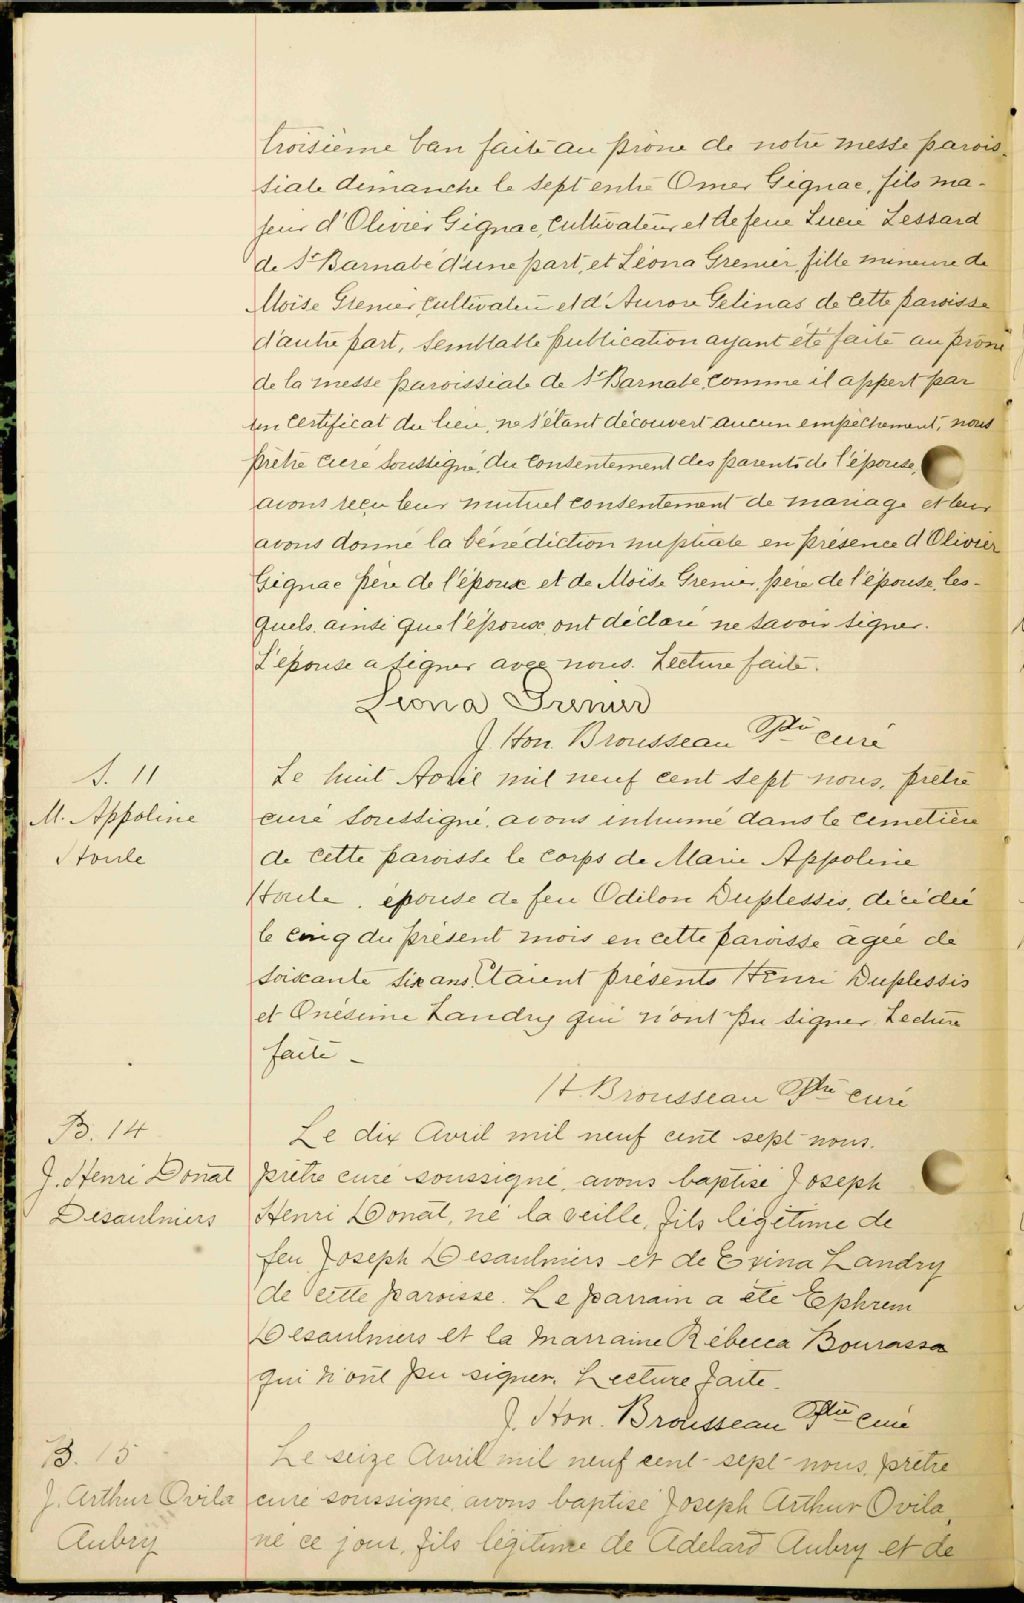 troisième ban faite au prône de notre messe parois-
siale dimanche le sept entre Omer Gignac, fils ma-
jeur d'Olivier Gignac, cultivateur et de feue Lucie Lessard
de St Barnabé d'une part, et Léona Grenier, fille mineure de
Moïse Grenier, cultivateur et d'Aurore Gelinas de cette paroisse
d'autre part, semblable publication ayant été faite au prône
de la messe paroissiale de St Barnabé, comme il appert par
un certificat du lieu, ne s'étant découvert aucun empêchement, nous
prêtre curé soussigné, du consentement des parents de l'épouse,
avons reçu leur mutuel consentement de mariage et leur
avons donné la bénédiction nuptiale en présence d'Olivier
Gignac père de l'époux et de Moïse Grenier, père de l'épouse, les-
quels, ainsi que l'époux, ont déclaré ne savoir signer.
L'épouse a signer avec nous. Lecture faite.
Léona Grenier
J. Hon. Brousseau Ptre curé
S. 11
M. Appoline
Houle
Le huit Avril mil neuf cent sept nous, prêtre
curé soussigné, avons inhumé dans le cimetière
de cette paroisse le corps de Marie Appoline
Houle, épouse de feu Odilon Duplessis, décédée
le cinq du présent mois en cette paroisse âgée de
soixante six ans. Etaient présents Henri Duplessis
et Onésime Landry qui n'ont pu signer. Lecture
faite -
H. Brousseau Ptre curé
B. 14
J. Henri Donat
Desaulniers
Le dix Avril mil neuf cent sept nous,
prêtre curé soussigné, avons baptisé Joseph
Henri Donat, né la veille, fils légitime de
feu Joseph Desaulniers et de Exina Landry
de cette paroisse. Le parrain a été Ephrem
Desaulniers et la marraine Rébecca Bourassa
qui n'ont pu signer. Lecture faite.
J. Hon. Brousseau Ptre curé
B. 15
J. Arthur Ovila
Aubry
Le seize Avril mil neuf cent-sept-nous, prêtre
curé soussigné, avons baptisé Joseph Arthur Ovila,
né ce jour, fils légitime de Adelard Aubry et de